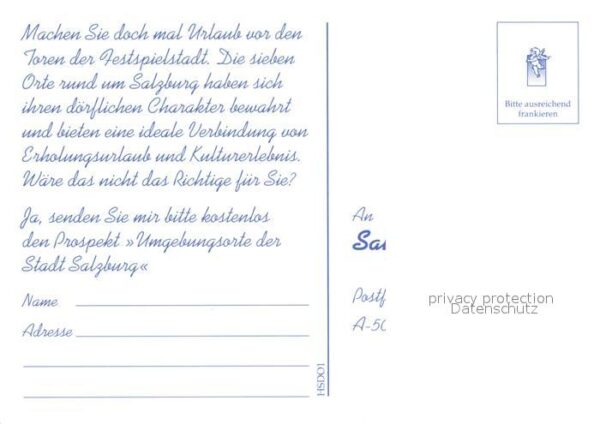 Machen Sie doch mal Urlaub vor den
Toren der Festspielstadt. Die sieben
Orte rund um Salzburg haben sich
ihren dörflichen Charakter bewahrt
und bieten eine ideale Verbindung von
Erholungsurlaub und Kulturerlebnis.
Wäre das nicht das Richtige für Sie?
Ja, senden Sie mir bitte kostenlos
den Prospekt »Umgebungsorte der
Stadt Salzburg«
Name
Adresse
HSDO1
Bitte ausreichend
frankieren
An
Postf
A-50
privacy protection
Datenschutz